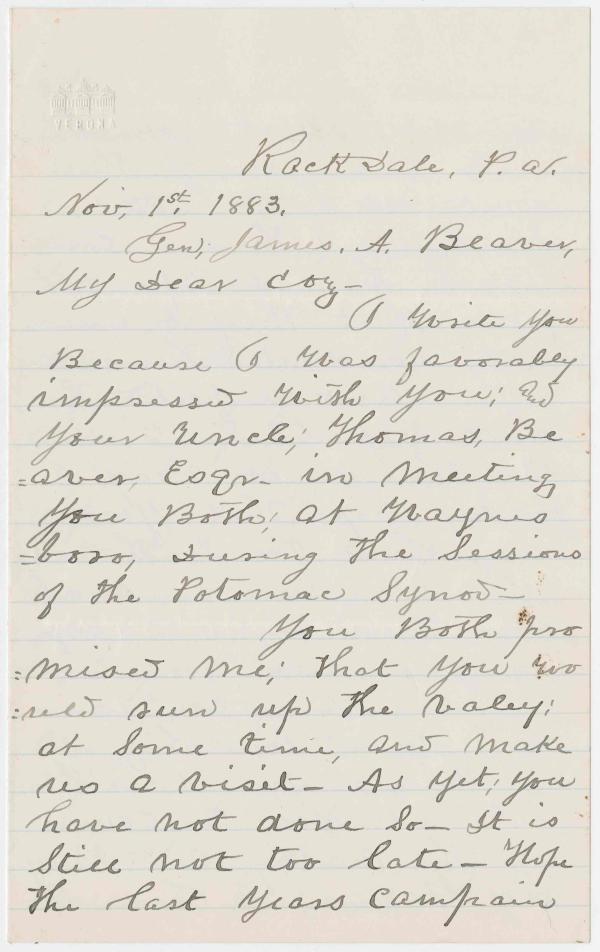 VERONA
Rack Dale, P. a.
Nov, 1st. 1883.
Gen, James. A. Beaver,
My Dear Coz–
I Write You
Because I Was favorabley
impressed With You; and
Your Uncle; Thomas, Be
=aver, Esqr– in Meeting
You Both; at Waynes
=boro, During The Sessions
of The Potomac Synod–
You Both pro
=mised Me; that You wo
=uld run up The valey;
at Some time, and Make
us a visit– As Yet, You
have not done So– It is
Still not too late– Hope
The last Years Campain